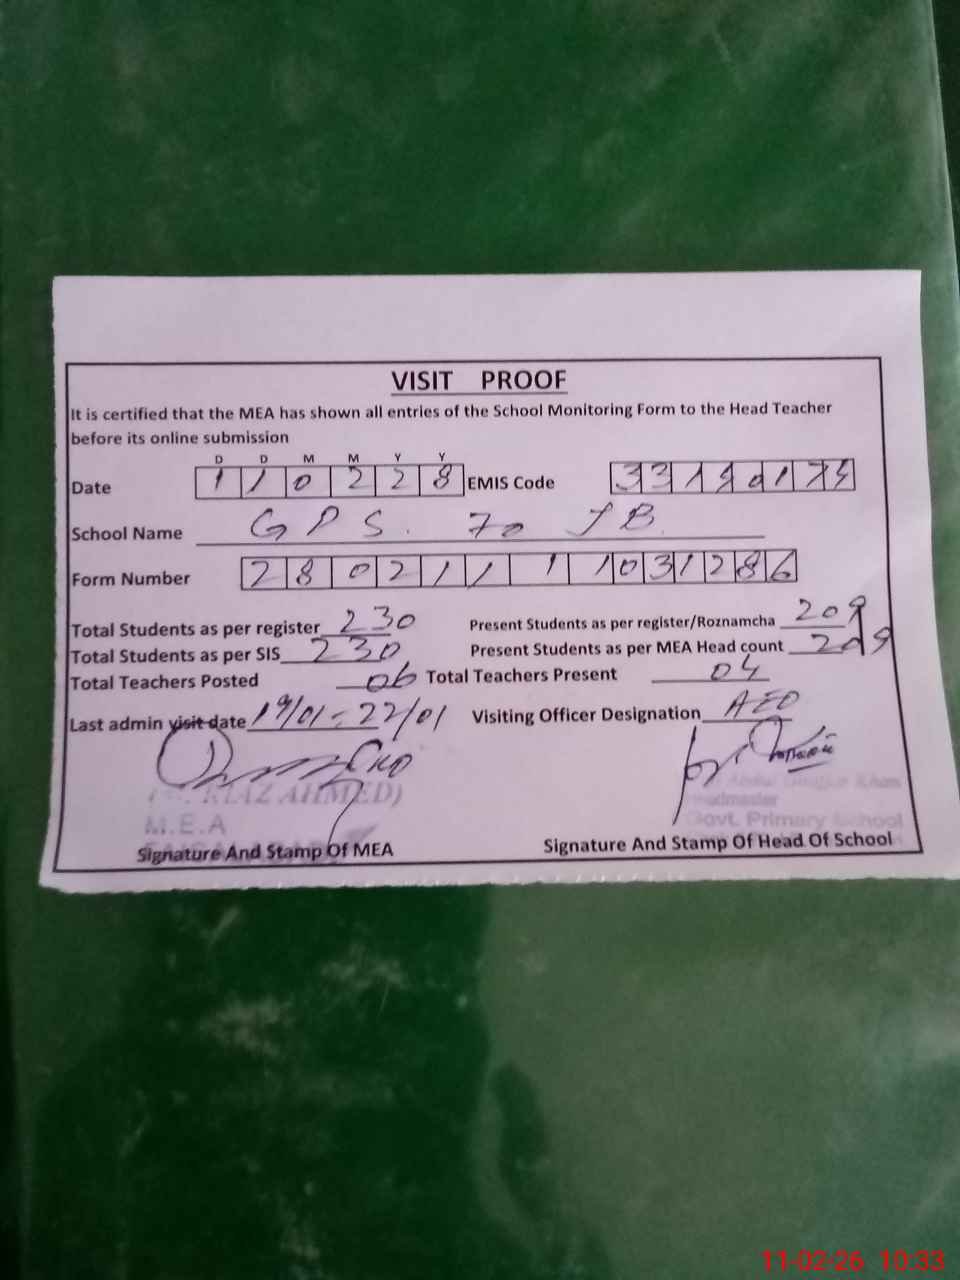 VISIT PROOF
It is certified that the MEA has shown all entries of the School Monitoring Form to the Head Teacher
before its online submission
D D M M Y Y
Date 1 1 0 2 2 8 EMIS Code
School Name GPS. 70 JB
Form Number 2 8 0 2 1 1 1 1 0 3 1 2 8 6
Total Students as per register 230 Present Students as per register/Roznamcha 209
Total Students as per SIS 230 Present Students as per MEA Head count 209
Total Teachers Posted 06 Total Teachers Present 04
Last admin visit date 19/01 - 22/01 Visiting Officer Designation AEO
RIAZ AHMED)
M.E.A
Abdul Khan
Headmaster
Govt. Primary School
Signature And Stamp Of MEA Signature And Stamp Of Head Of School
11-02-26 10:33